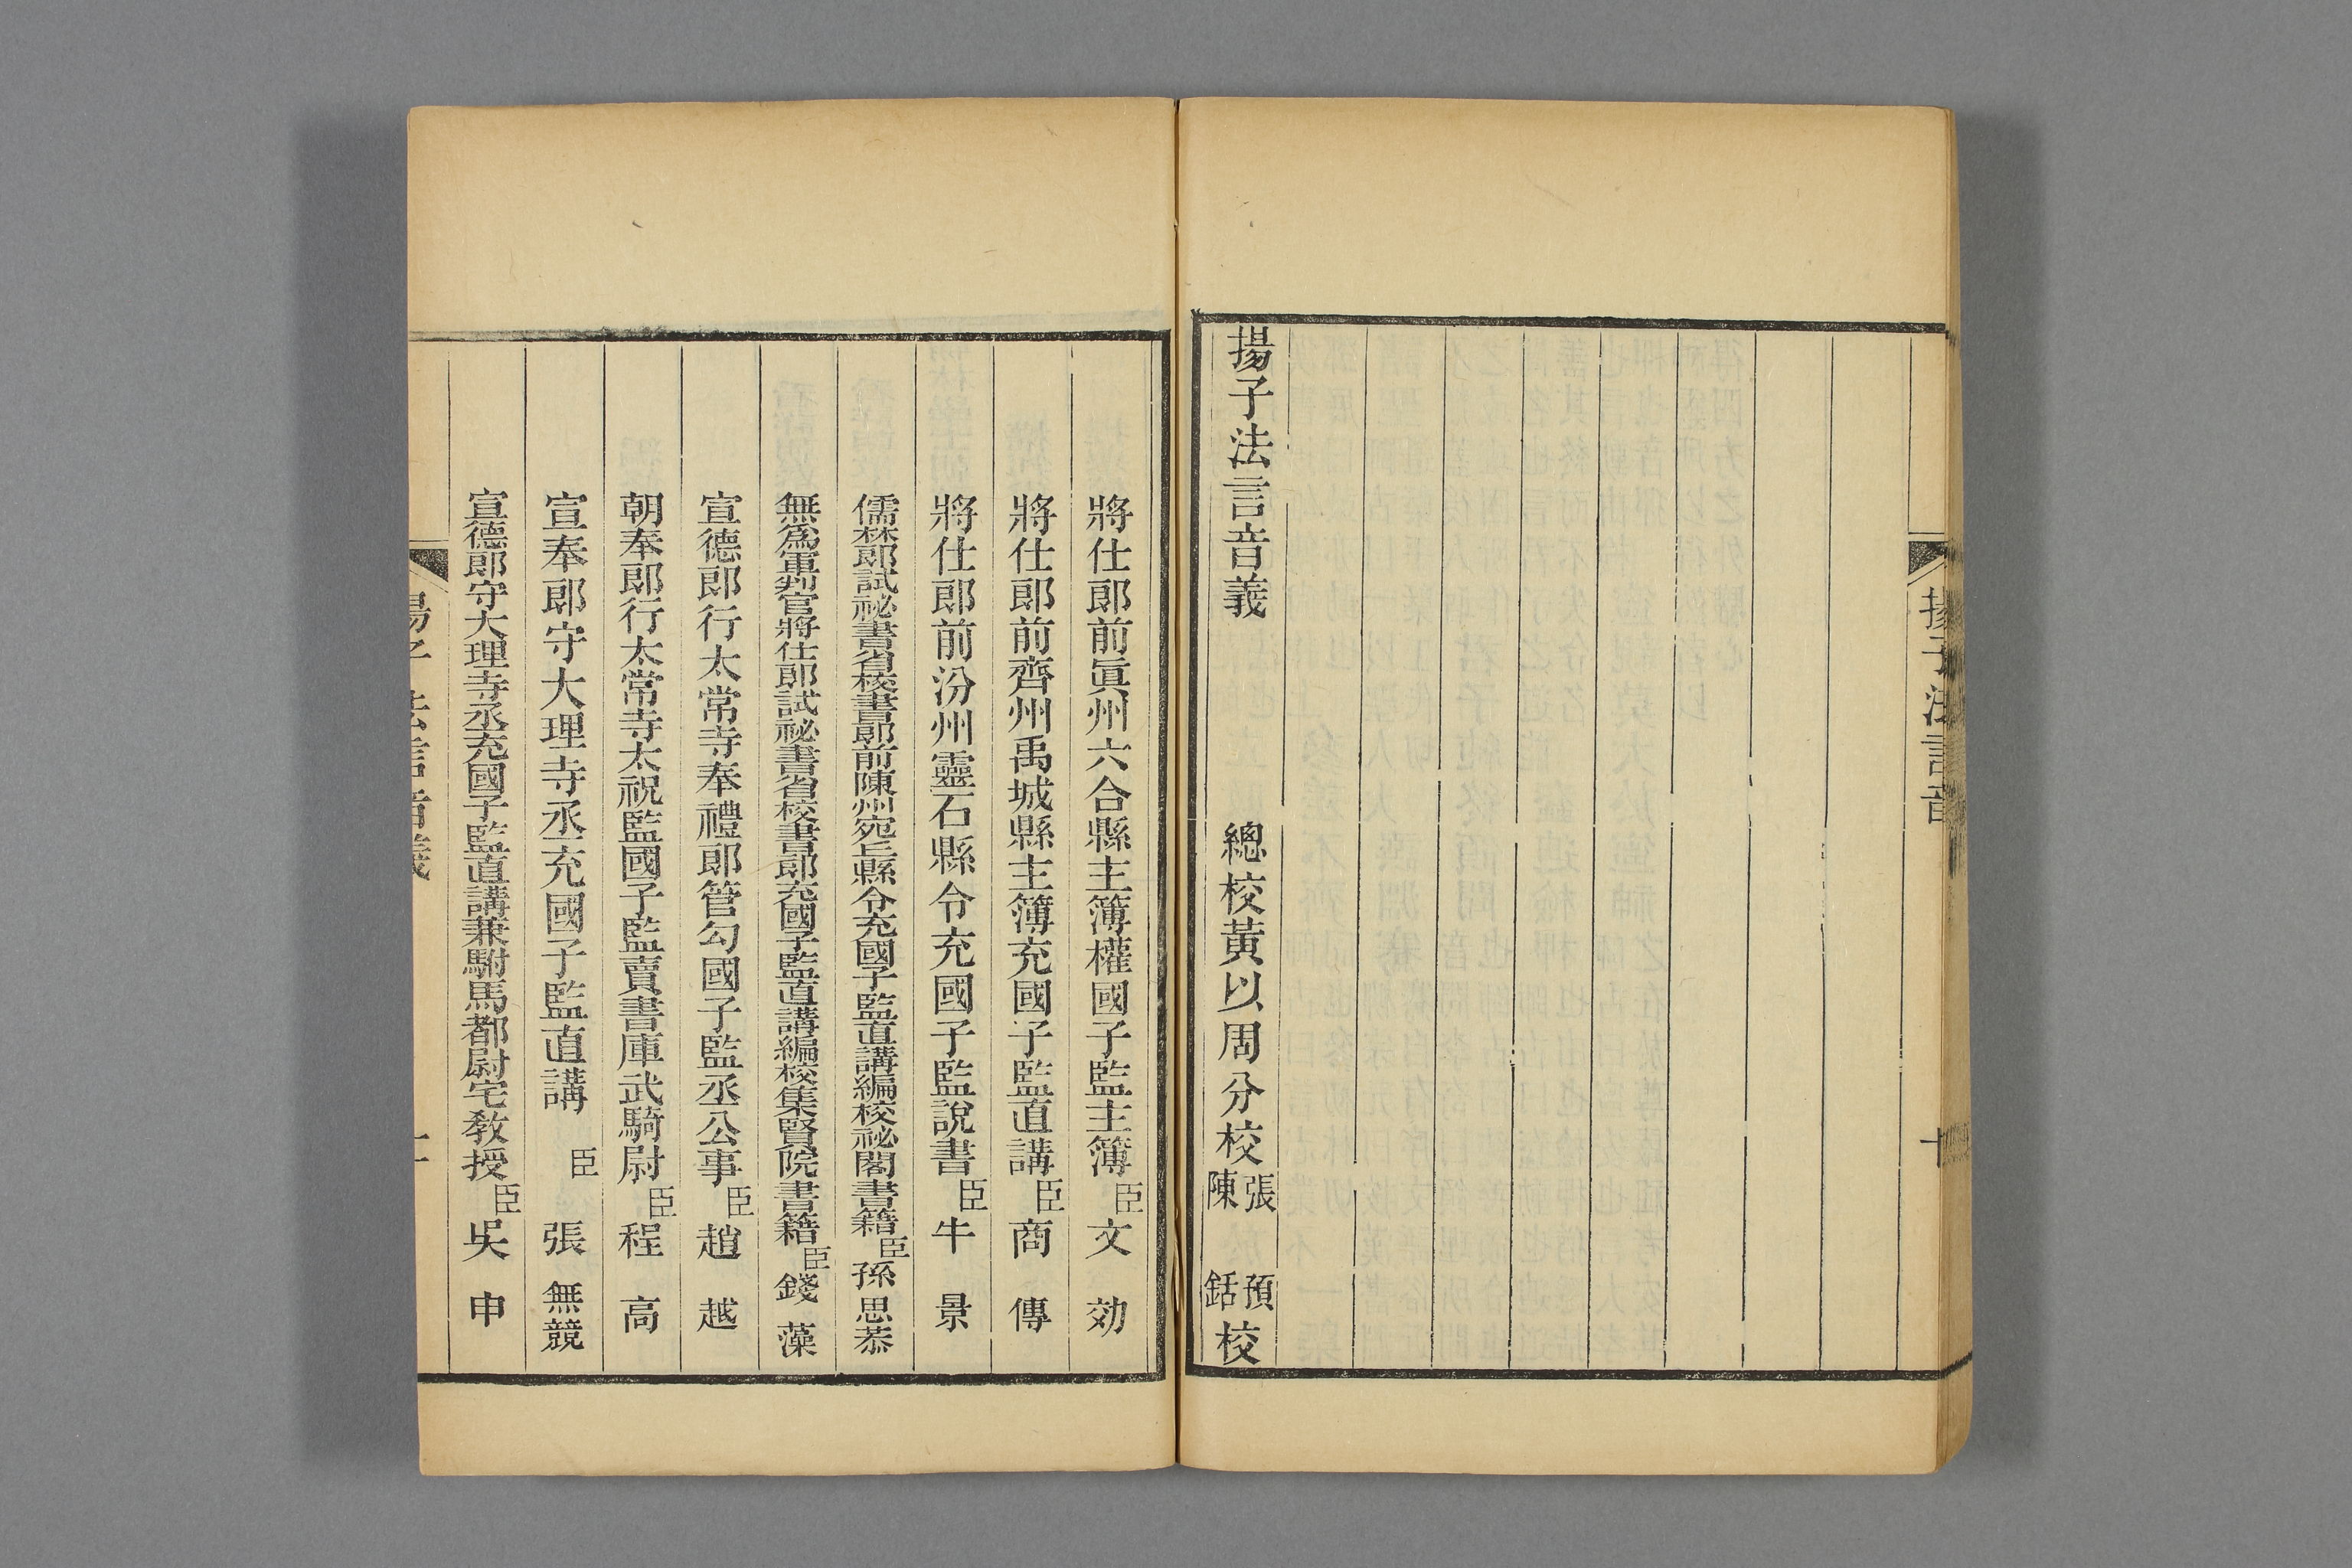 揚子法言音
十
揚子法言音義　總校黃以周分校張預陳銛校
將仕郎前眞州六合縣主簿權國子監主簿臣文効
將仕郎前齊州禹城縣主簿充國子監直講臣商傳
將仕郎前汾州靈石縣令充國子監說書臣牛景
儒林郎試祕書省校書郎前陳州宛丘縣令充國子監直講編校祕閣書籍臣孫思恭
無爲軍判官將仕郎試祕書省校書郎充國子監直講編校集賢院書籍臣錢藻
宣德郎行太常寺奉禮郎管勾國子監丞公事臣趙越
朝奉郎行太常寺太祝監國子監賣書庫武騎尉臣程高
宣奉郎守大理寺丞充國子監直講臣張無競
宣德郎守大理寺丞充國子監直講兼駙馬都尉宅教授臣吳申
揚子法言音義